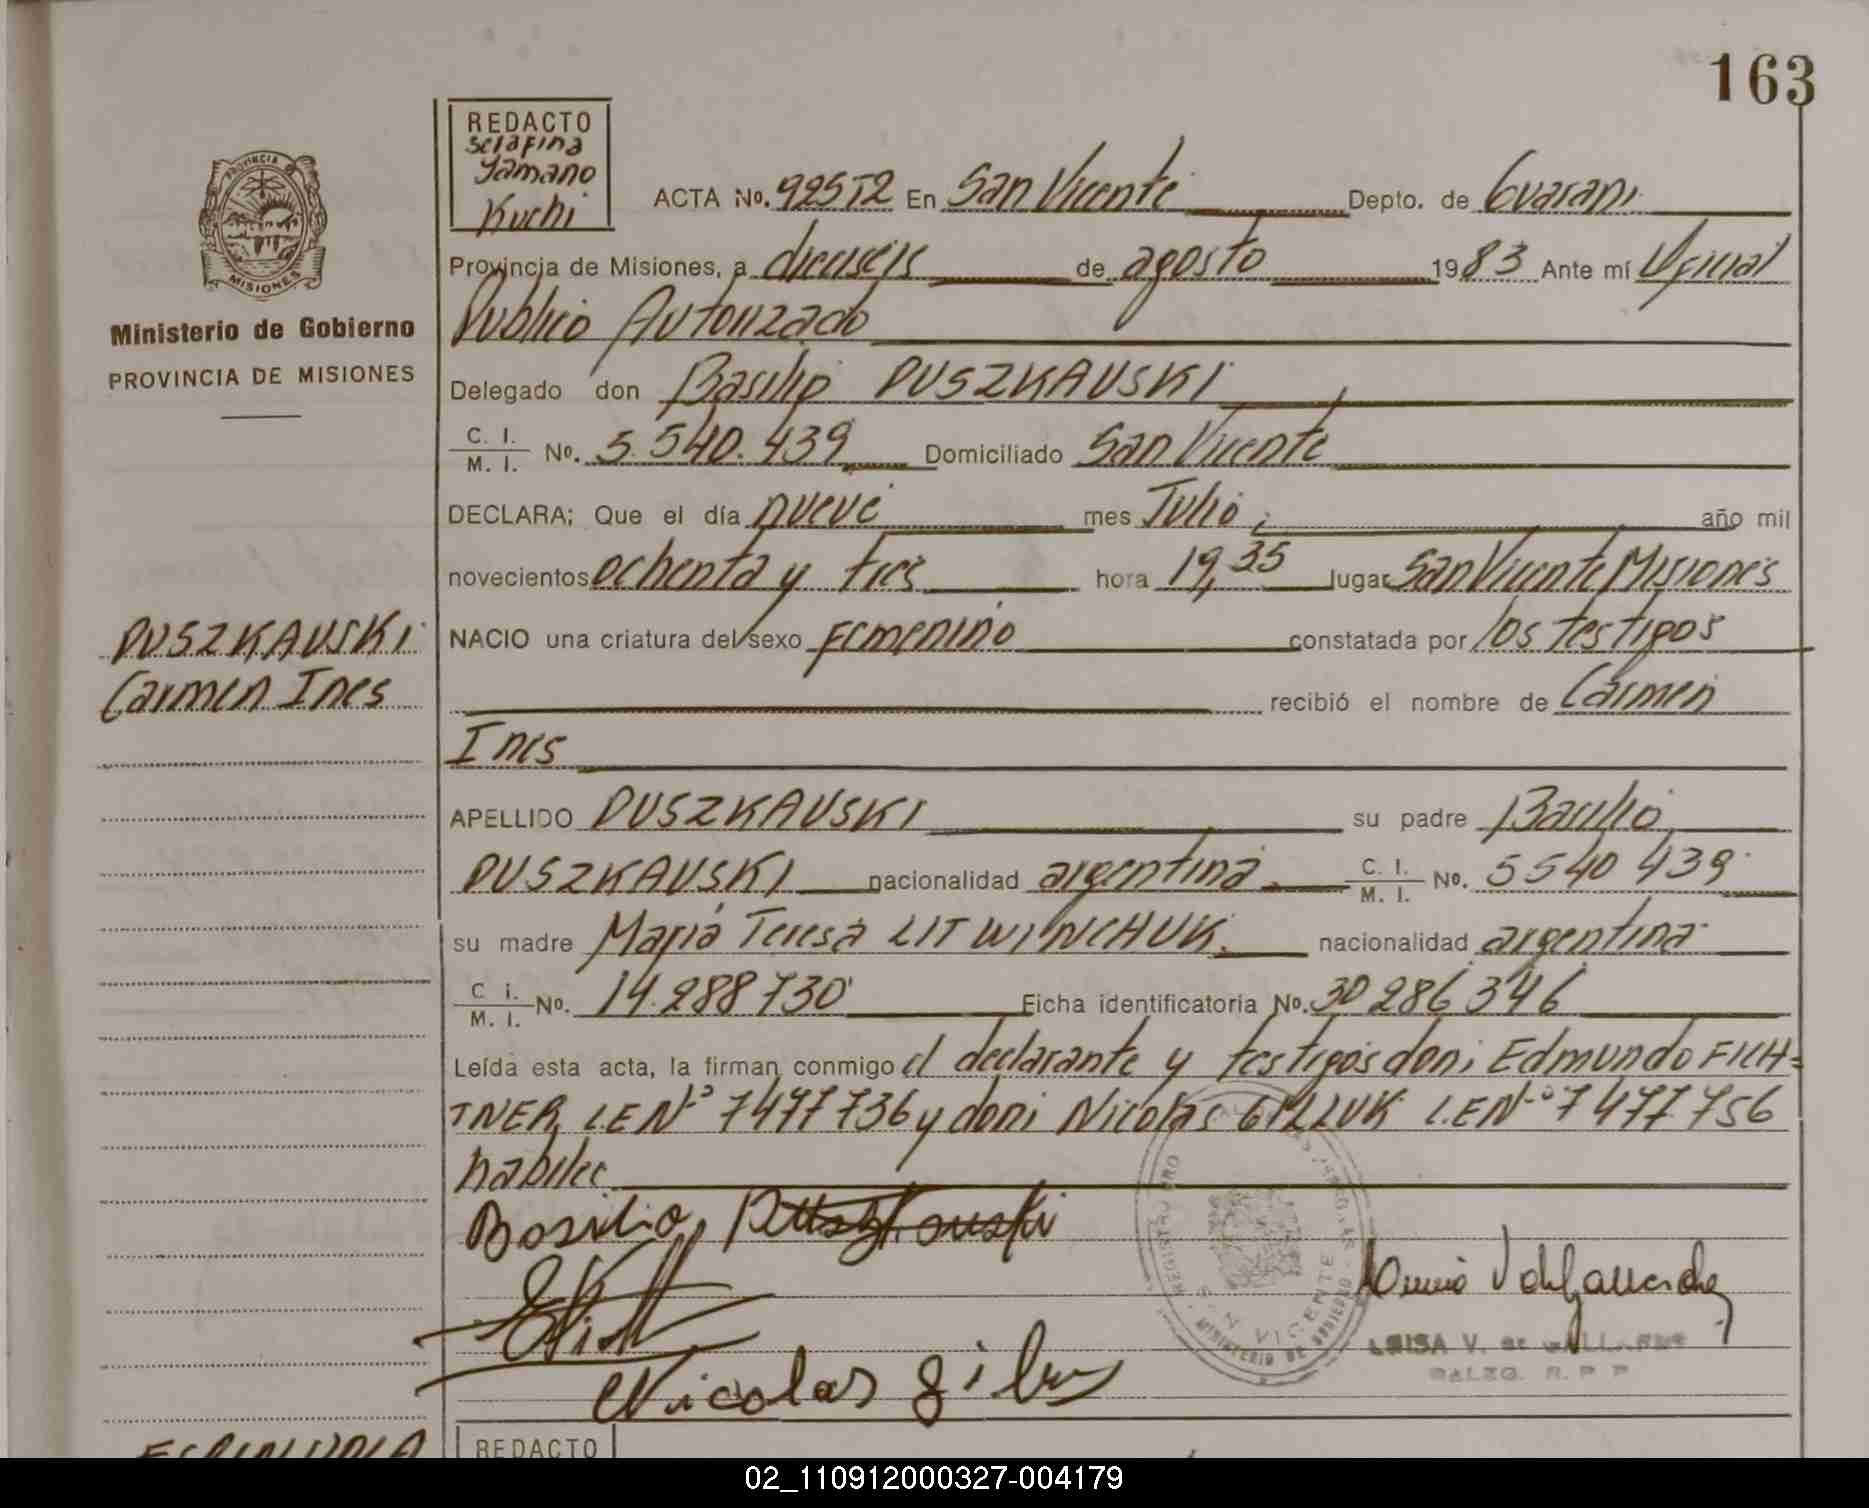 163
REDACTO
Serafina
Yamano
Kuchi
PROVINCIA
MISIONES
Ministerio de Gobierno
PROVINCIA DE MISIONES
ACTA No. 92572 En San Vicente Depto. de Guarani
Provincia de Misiones, a dieciseis de agosto 1983 Ante mí Oficial
Publico Autorizado
Delegado don Basilio PUSZKAUSKI
C. I. / M. I. No. 5.540.439 Domiciliado San Vicente
DECLARA; Que el día nueve mes Julio año mil
novecientos ochenta y tres hora 19,35 lugar San Vicente Misiones
NACIO una criatura del sexo femenino constatada por los testigos
recibió el nombre de Carmen
Ines
PUSZKAUSKI
Carmen Ines
APELLIDO PUSZKAUSKI su padre Basilio
PUSZKAUSKI nacionalidad argentina C. I. / M. I. No. 5540 439
su madre Maria Teresa LITWINCHUK. nacionalidad argentina
C i. / M. I. No. 14.288 730 Ficha identificatoria No. 30 286 346
Leída esta acta, la firman conmigo el declarante y testigos don: Edmundo FICH=
TNER, L.E Nº 7477736 y don: Nicolas GILLUK L.E Nº 7477.756
habiles
Basilio Puszkauski
SAN VICENTE
MINISTERIO DE GOBIERNO
Nicolas
LUISA V. de
REDACTO
02_110912000327-004179